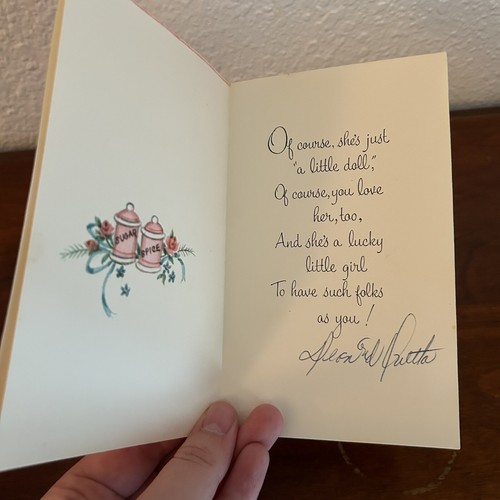 SUGAR
SPICE
Of course, she's just
"a little doll,"
Of course, you love
her, too,
And she's a lucky
little girl
To have such folks
as you!